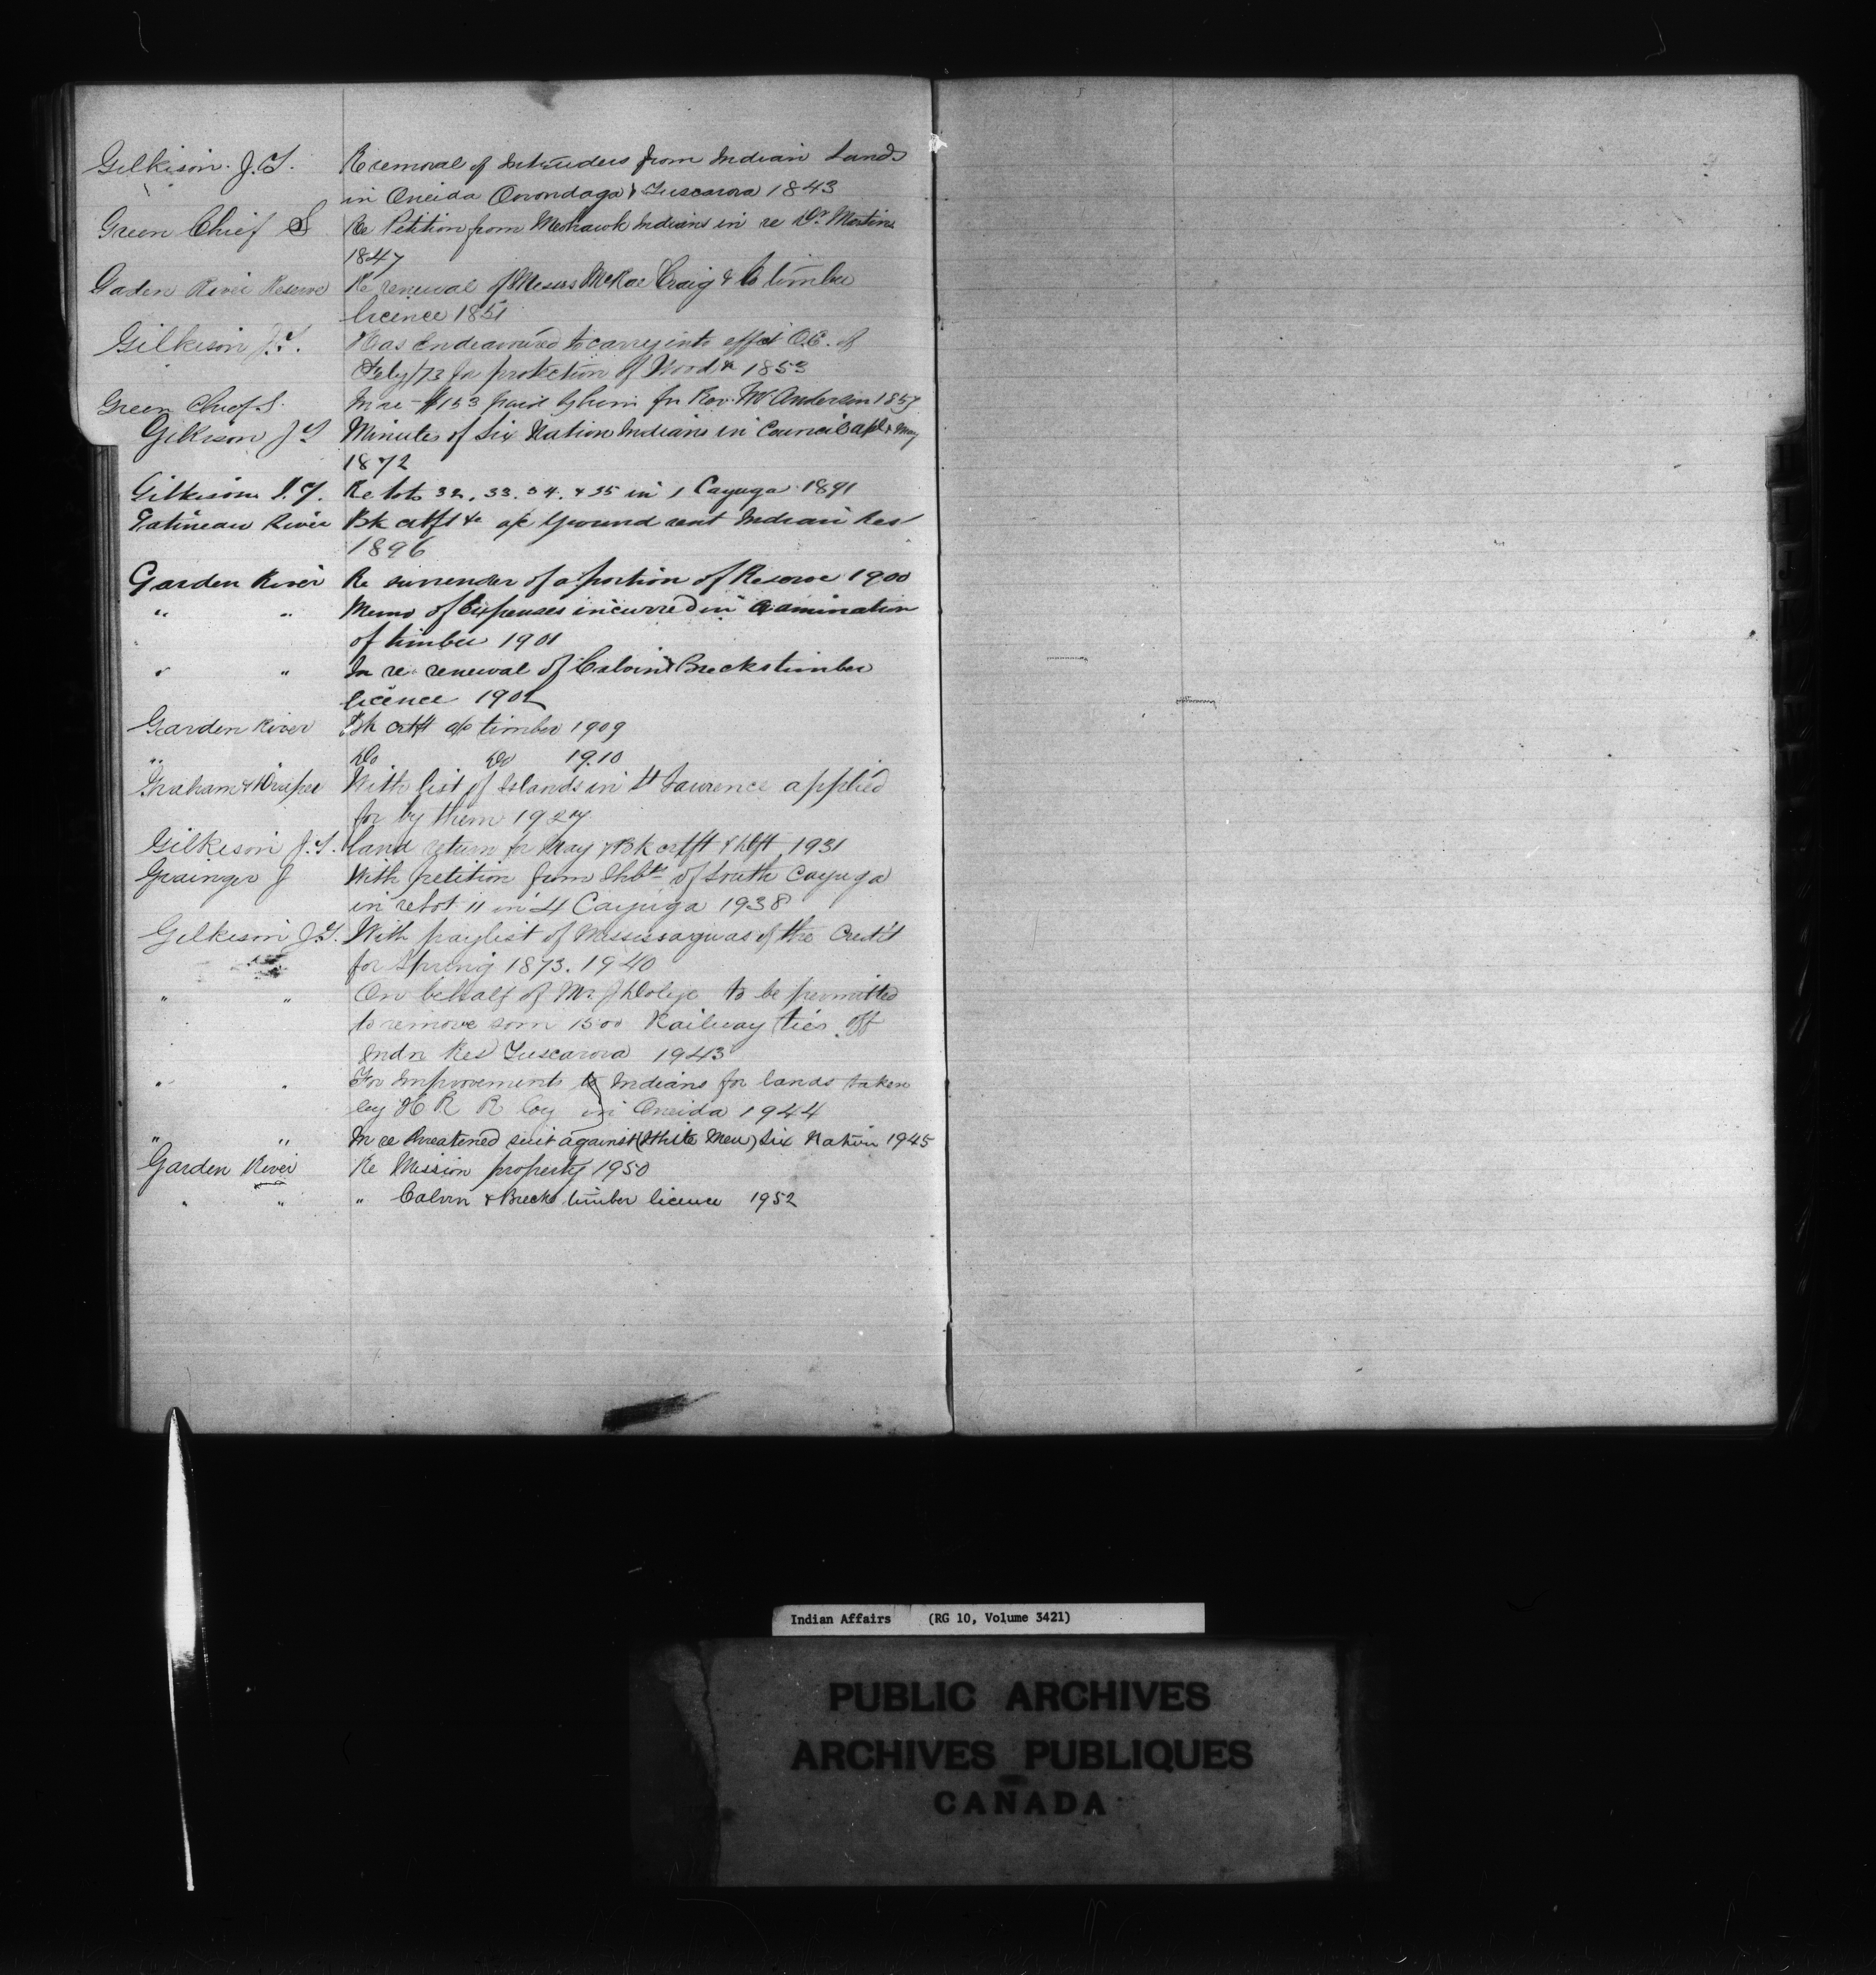 Gilkison J.T. Re removal of Intruders from Indian Lands
in Oneida Onondaga & Tuscarora 1843
Green Chief S Re Petition from Mohawk Indians in re Dr. Martin
1847
Gaden River Reserve Re renewal of Messrs McRae Craig & Co timber
licence 1851
Gilkison J.T. Has Endeavoured to carry into effect O.C. of
Feby/73 for protection of Wood & 1853
Green Chief S. In re $153 paid by him for Rev. Mr Anderson 1857
Gilkison J T Minutes of Six Nation Indians in Council Apl & May
1872
Gilkison J.T. Re lots 32, 33. 34. & 35 in 1 Cayuga 1891
Gatineau River Bk ctfs &c a/c Ground rent Indian Res
1896
Garden River Re surrender of a portion of Reserve 1900
" " Memo of Expenses incurred in Examination
of timber 1901
" " In re renewal of Calvin & Brecks timber
licence 1902
Garden River Bk ctft a/c timber 1909
" Do Do 1910
Graham & Draper With list of Islands in St Lawrence applied
for by them 1927
Gilkison J.T. Land return for May & Bk ctfft & Dft 1931
Grainger J With petition from Ihbts of South Cayuga
in re lot 11 in 4 Cayuga 1938
Gilkison J.T. With paylist of Mississaguas of the Credit
for Spring 1873. 1940
" " On behalf of Mr J to be permitted
to remove som 1500 Railway ties off
Indn Res Tuscarora 1943
" " For Improvements to Indians for lands taken
by H R R Coy in Oneida 1944
" " In re threatened suit against (White Men) Six Nation 1945
Garden River Re Mission property 1950
" " " Calvin & Brecks timber licence 1952
Indian Affairs (RG 10, Volume 3421)
PUBLIC ARCHIVES
ARCHIVES PUBLIQUES
CANADA